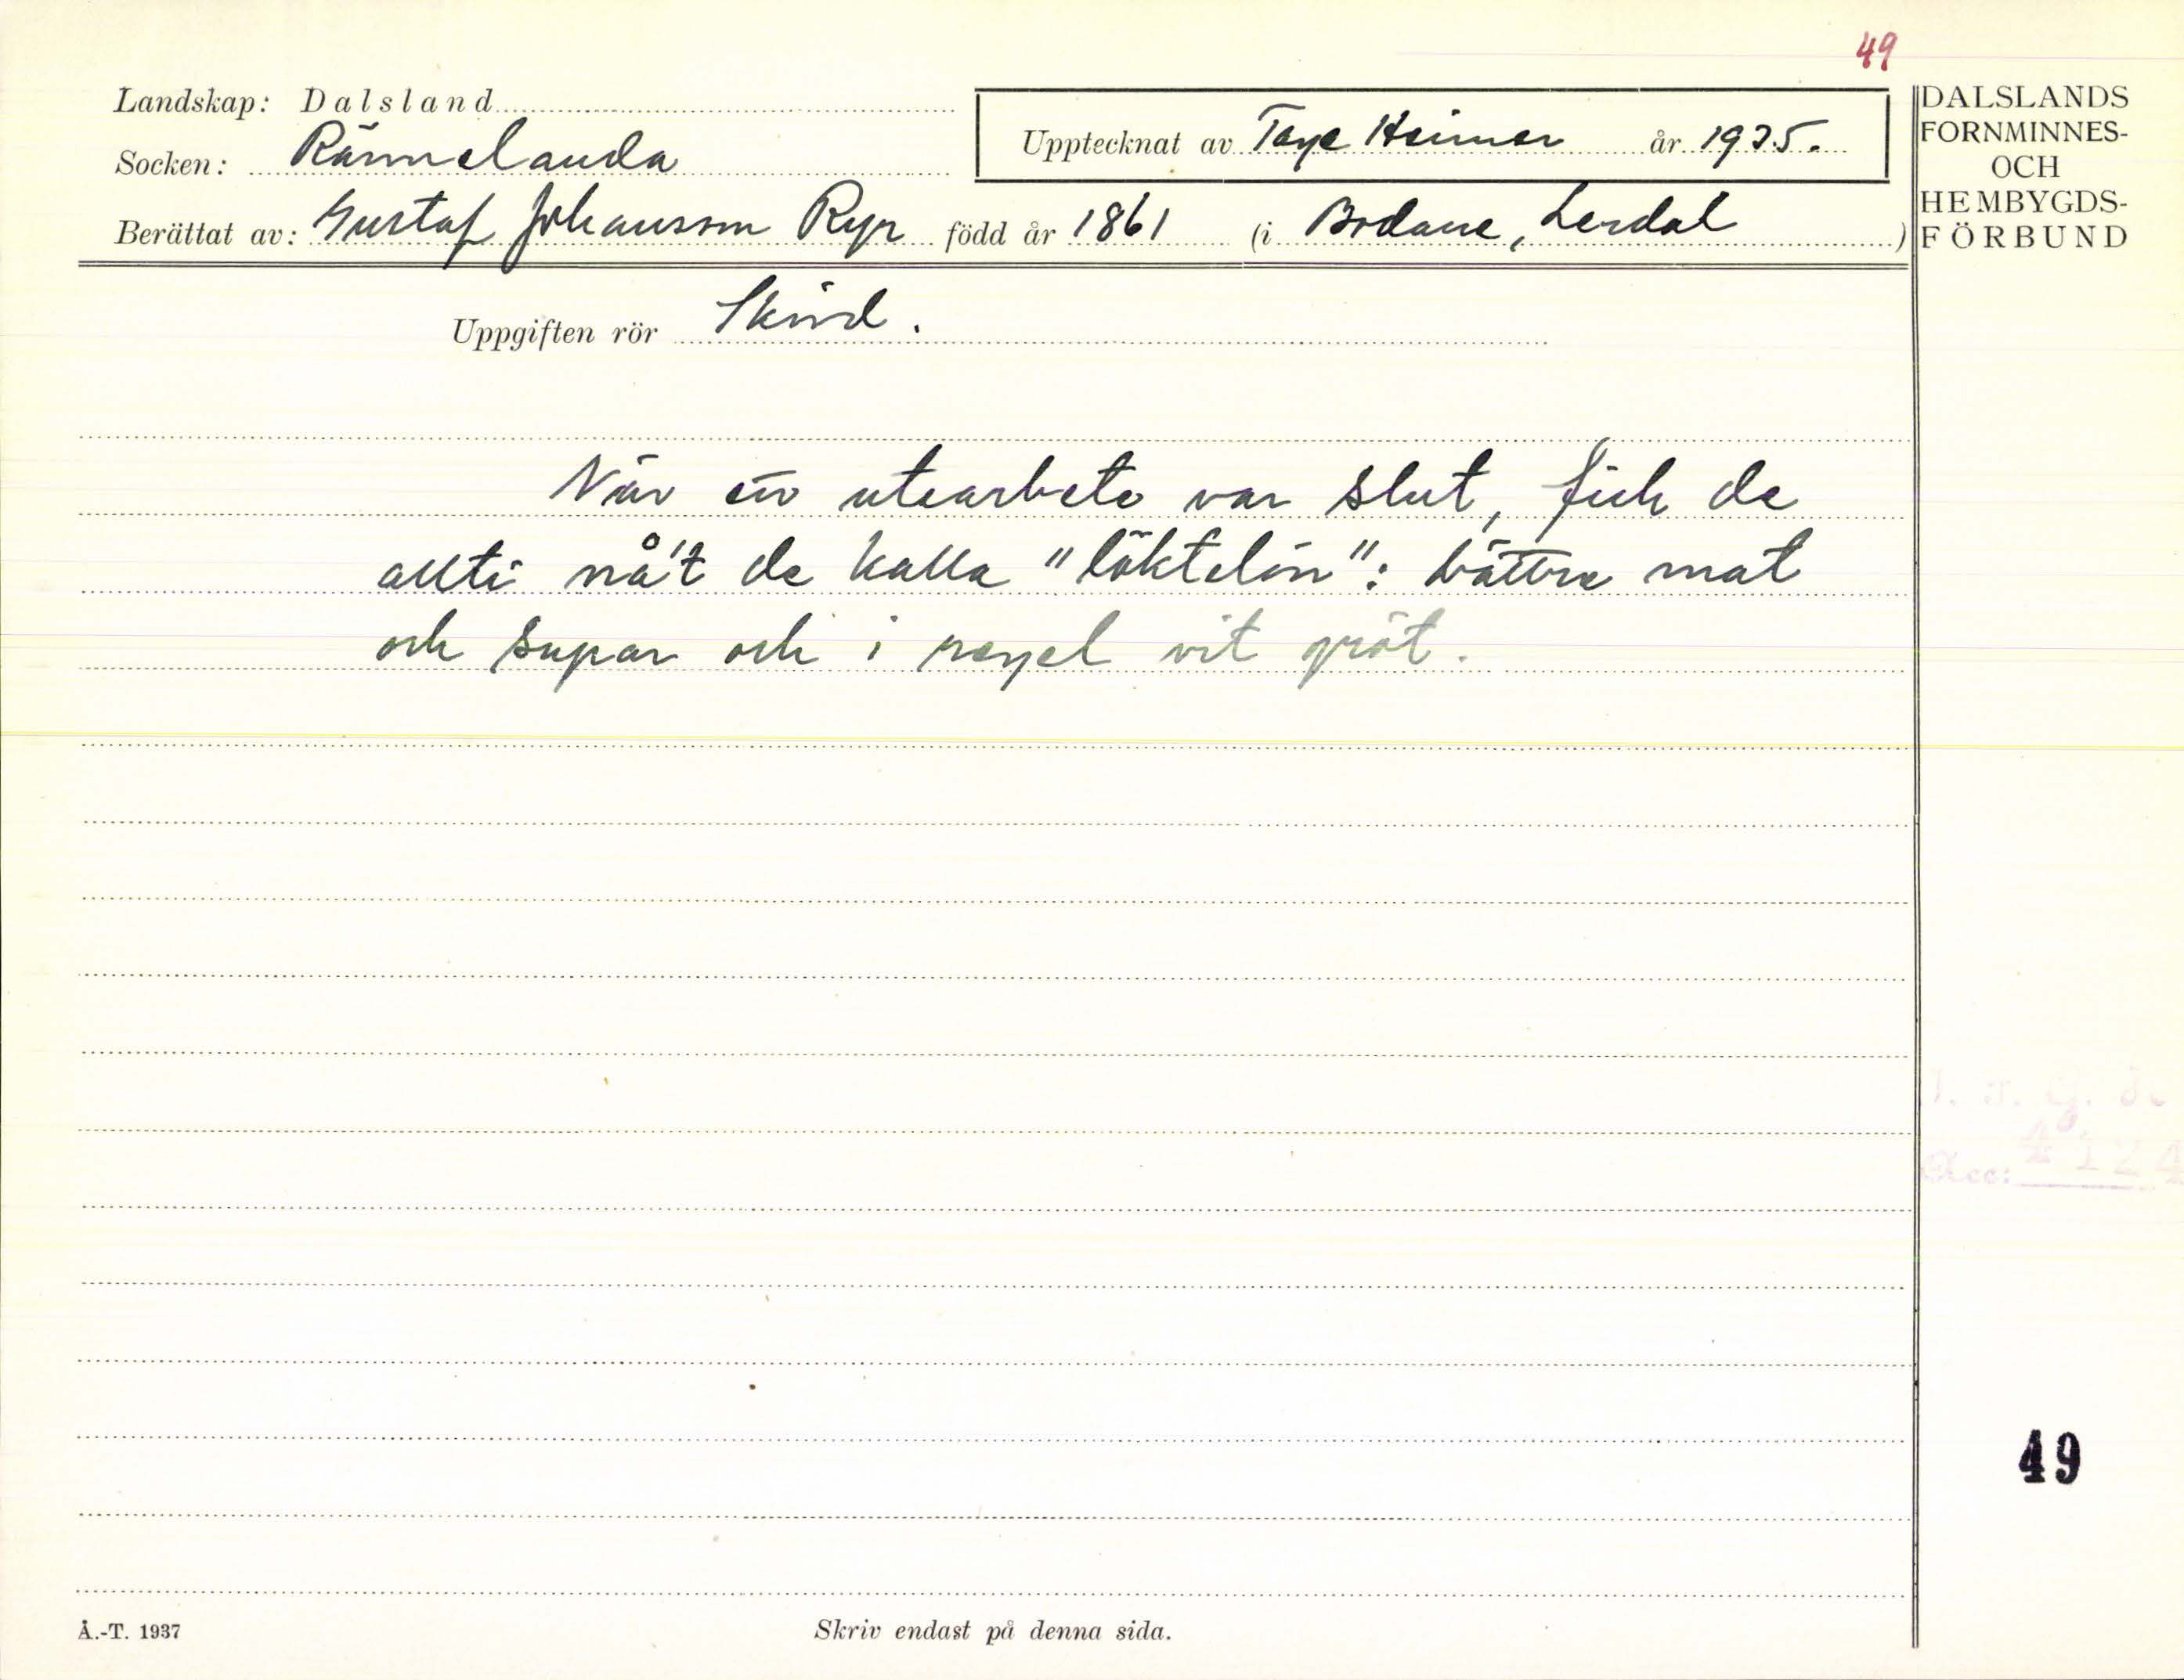 49
Landskap: Dalsland
Socken: Rännelanda
Upptecknat av Tage Heimer år 1935.
Berättat av: Gustaf Johansson Ryr född år 1861 (i Bodane, Lerdal)
DALSLANDS
FORNMINNES-
OCH
HEMBYGDS-
FÖRBUND
Uppgiften rör Skörd.
När en utearbete var slut, fick de
allti nå't de kalla "löktelön": bättre mat
och supar och i regel vit gröt.
Acc:
49
Å.-T. 1937
Skriv endast på denna sida.